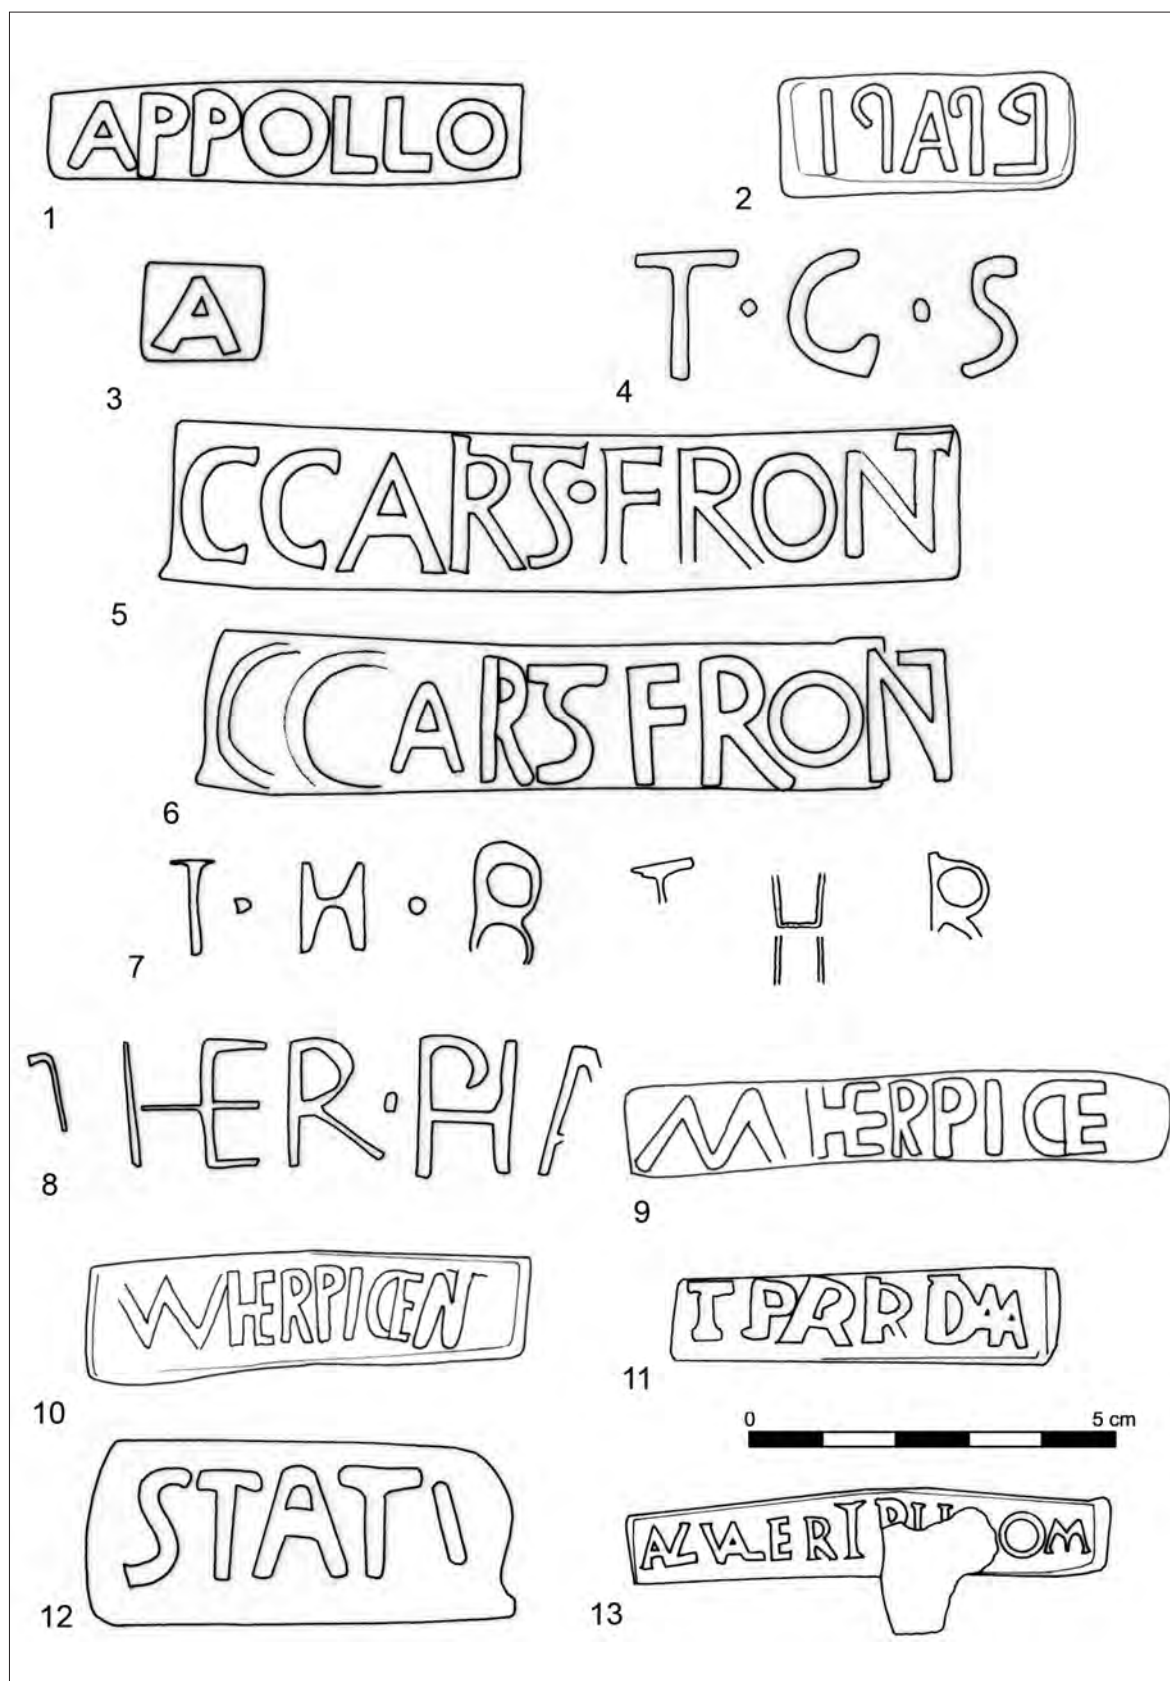 APPOLLO
1
2
A
3
T·C·S
4
CCARTS·FRONT
5
CCARTS FRONT
6
T·H·R T H R
7
HER·PH
8
M HERPICE
9
HERPICEN
10
T PARR DAA
11
0 5 cm
STATI
12
13